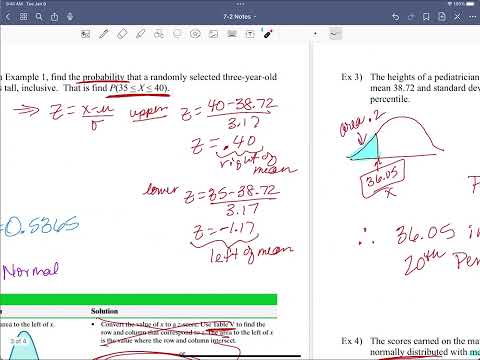 9:46 AM Tue Jan 9
7-2 Notes
n Example 1, find the probability that a randomly selected three-year-old
s tall, inclusive. That is find P(35 ≤ X ≤ 40).
⇒ z = x-u/σ upper z = 40-38.72/3.17
z = .40
right of mean
lower z = 35-38.72/3.17
z = -1.17
left of mean
=0.5365
Normal
Solution
area to the left of x.
• Convert the value of x to a z-score. Use Table V to find the
row and column that correspond to z. The area to the left of x
is the value where the row and column intersect.
3 of 4
Ex 3) The heights of a pediatrician
mean 38.72 and standard dev
percentile.
area .2
36.05
x
F
∴ 36.05 in
20th Per
Ex 4) The scores earned on the ma
normally distributed with m